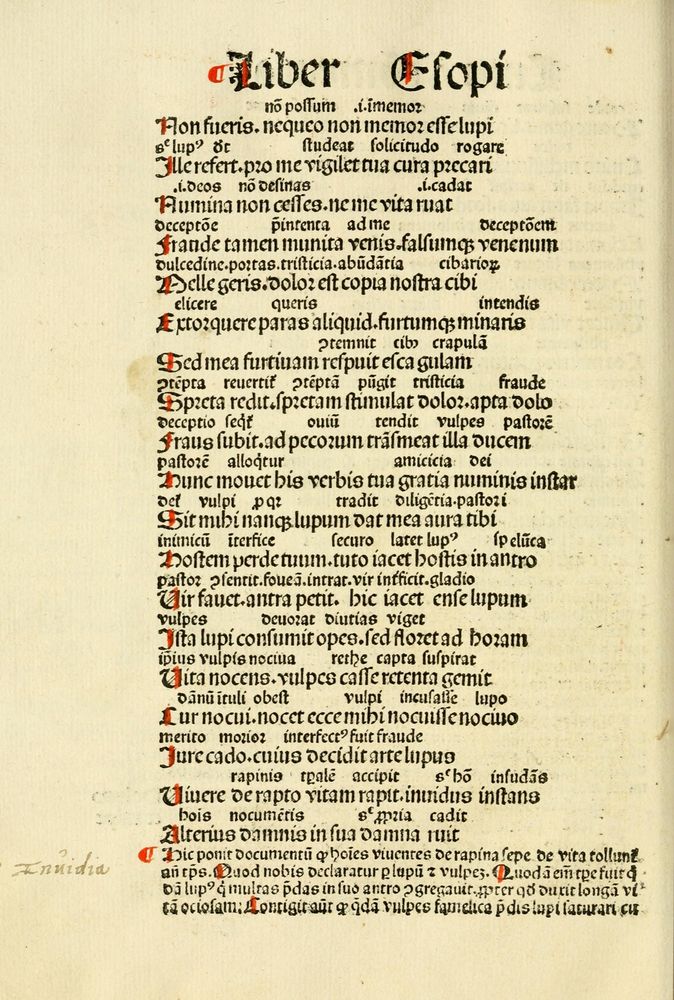 ¶ Liber Esopi
nō possum .i. īmemor
Non fueris. nequeo non memor esse lupi
studeat solicitudo rogare
Ille refert. pro me vigilet tua cura precari
.i. deos nō desinas .i. cadat
Numina non cesses. ne me vita ruat
deceptōe p̄intenta ad me deceptōem
Fraude tamen munita venis. falsumqꝫ venenum
dulcedine. portas. tristicia. abūdātia cibarioꝝ
Melle geris. dolor est copia nostra cibi
elicere queris intendis
Extorquere paras aliquid. furtumqꝫ minaris
ꝯtemnit cibꝫ crapulā
Sed mea furtiuam respuit esca gulam
ꝯtēpta ꝯtēptā pūgit tristicia fraude
Spreta redit. spretam stimulat dolor. apta dolo
deceptio ouiū tendit vulpes pastorē
Fraus subit. ad pecorum trāsmeat illa ducem
pastorē alloqtur amicicia dei
Hunc mouet his verbis tua gratia numinis instar
vulpi tradit diligētia. pastori
Sit mihi nanqꝫ lupum dat mea aura tibi
inimicū īterfice securo latet lupꝰ spelūca
Hostem perde tuum. tuto iacet hostis in antro
pastor ꝯsentit. foueā. intrat. vir intficit. gladio
Uir fauet. antra petit. hic iacet ense lupum
vulpes deuorat diutias viget
Ista lupi consumit opes. sed floret ad horam
ip̄ius vulpis nociua rethe capta suspirat
Uita nocens. vulpes casse retenta gemit
dānū ītuli obest vulpi incusasse lupo
Cur nocui. nocet ecce mihi nocuisse nociuo
merito morior interfectꝰ fuit fraude
Jure cado. cuius decidit arte lupus
rapinis tp̄alē accipit hō insudās
Uiuere de rapto vitam rapit. inuidus instans
hoīs nocumētis ꝓpria cadit
Alterius damnis in sua damna ruit
¶ Hic ponit documentū ꝙ hoīes viuentes de rapina sepe de vita tollunt̄
Inuidia
añ tp̄s. Quod nobis declaratur ꝑ lupū ⁊ vulpeꝫ. Quodā em̄ tꝑe fuit q̄
dā lupꝰ q̄ multas p̄das in suo antro ꝯgregauit. ꝓpter qd̄ duxit longā vi-
tā ociosam. Contigit aūt ꝙ q̄dā vulpes famelica p̄dis lupi saturari cu